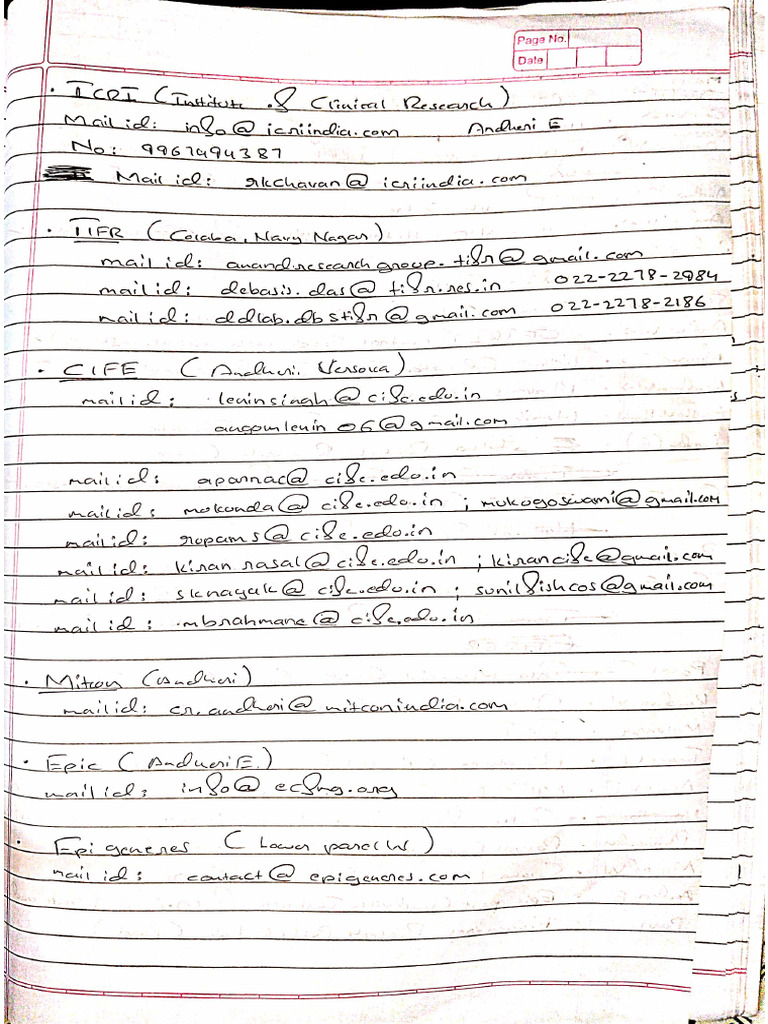 Page No.
Date
• ICRI (Institute of Clinical Research)
Mail id: info@icriindia.com Andheri E
No: 9967494387
Mail id: rkchavan@icriindia.com
• TIFR (Colaba, Navy Nagar)
mail id: anandresearchgroup.tifr@gmail.com
mail id: debasis.das@tifr.res.in 022-2278-2984
mail id: ddlab.dbstifr@gmail.com 022-2278-2186
• CIFE (Andheri. Versova)
mail id: leninsingh@cife.edu.in
angomlenin06@gmail.com
mail id: aparnac@cife.edu.in
mail id: mukunda@cife.edu.in ; mukugoswami@gmail.com
mail id: rupams@cife.edu.in
mail id: kiran rasal@cife.edu.in ; kirancife@gmail.com
mail id: sknayak@cife.edu.in ; sunilfishcos@gmail.com
mail id: mbrahmane@cife.edu.in
• Mitcon (Andheri)
mail id: cr.andheri@mitconindia.com
• Epic (Andheri E.)
mail id: info@ecfmg.org
• Epigeneres (Lower parel W)
mail id: contact@epigeneres.com